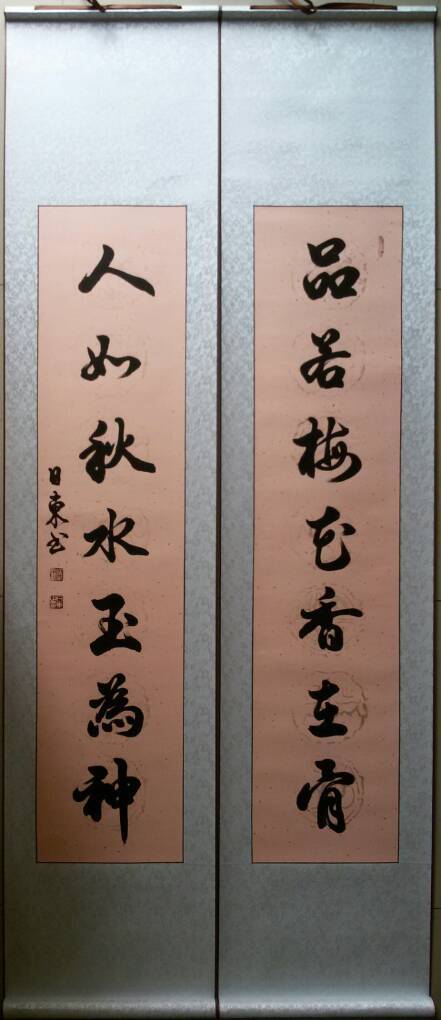 品若梅花香在骨
人如秋水玉為神
日東书